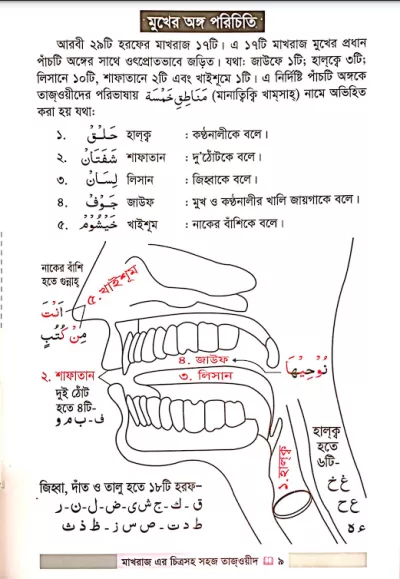 মুখের অঙ্গ পরিচিতি
আরবী ২৯টি হরফের মাখরাজ ১৭টি। এ ১৭টি মাখরাজ মুখের প্রধান
পাঁচটি অঙ্গের সাথে ওৎপ্রোতভাবে জড়িত। যথা: জাউফে ১টি; হাল্‌ক্বে ৩টি;
লিসানে ১০টি, শাফাতানে ২টি এবং খাইশূমে ১টি। এ নির্দিষ্ট পাঁচটি অঙ্গকে
তাজ্‌ওয়ীদের পরিভাষায় مَنَاطِقِ خَمْسَة (মানাত্বিক্বি খাম্‌সাহ্) নামে অভিহিত
করা হয় যথা:
১. حَلْقٌ হাল্‌ক্ব : কণ্ঠনালীকে বলে।
২. شَفَتَانْ শাফাতান : দু'ঠোঁটকে বলে।
৩. لِسَانْ লিসান : জিহ্বাকে বলে।
৪. جَوْفْ জাউফ : মুখ ও কণ্ঠনালীর খালি জায়গাকে বলে।
৫. خَيْشُوْمْ খাইশূম : নাকের বাঁশিকে বলে।
নাকের বাঁশি
হতে গুন্নাহ্
اَنْتَ
مِنْ كُتُبٍ
৫. খাইশূম
২. শাফাতান
দুই ঠোঁট
হতে ৪টি-
ف-ب م و
৪. জাউফ
৩. লিসান
نُوْحِيْهَا
১. হাল্‌ক্ব
হাল্‌ক্ব
হতে
৬টি-
غ خ
ع ح
ء ه
জিহ্বা, দাঁত ও তালু হতে ১৮টি হরফ-
ق - ك - ج ش ى - ض - ل - ن - ر
ط د ت - ص س ز - ظ ذ ث
মাখরাজ এর চিত্রসহ সহজ তাজ্‌ওয়ীদ ৯